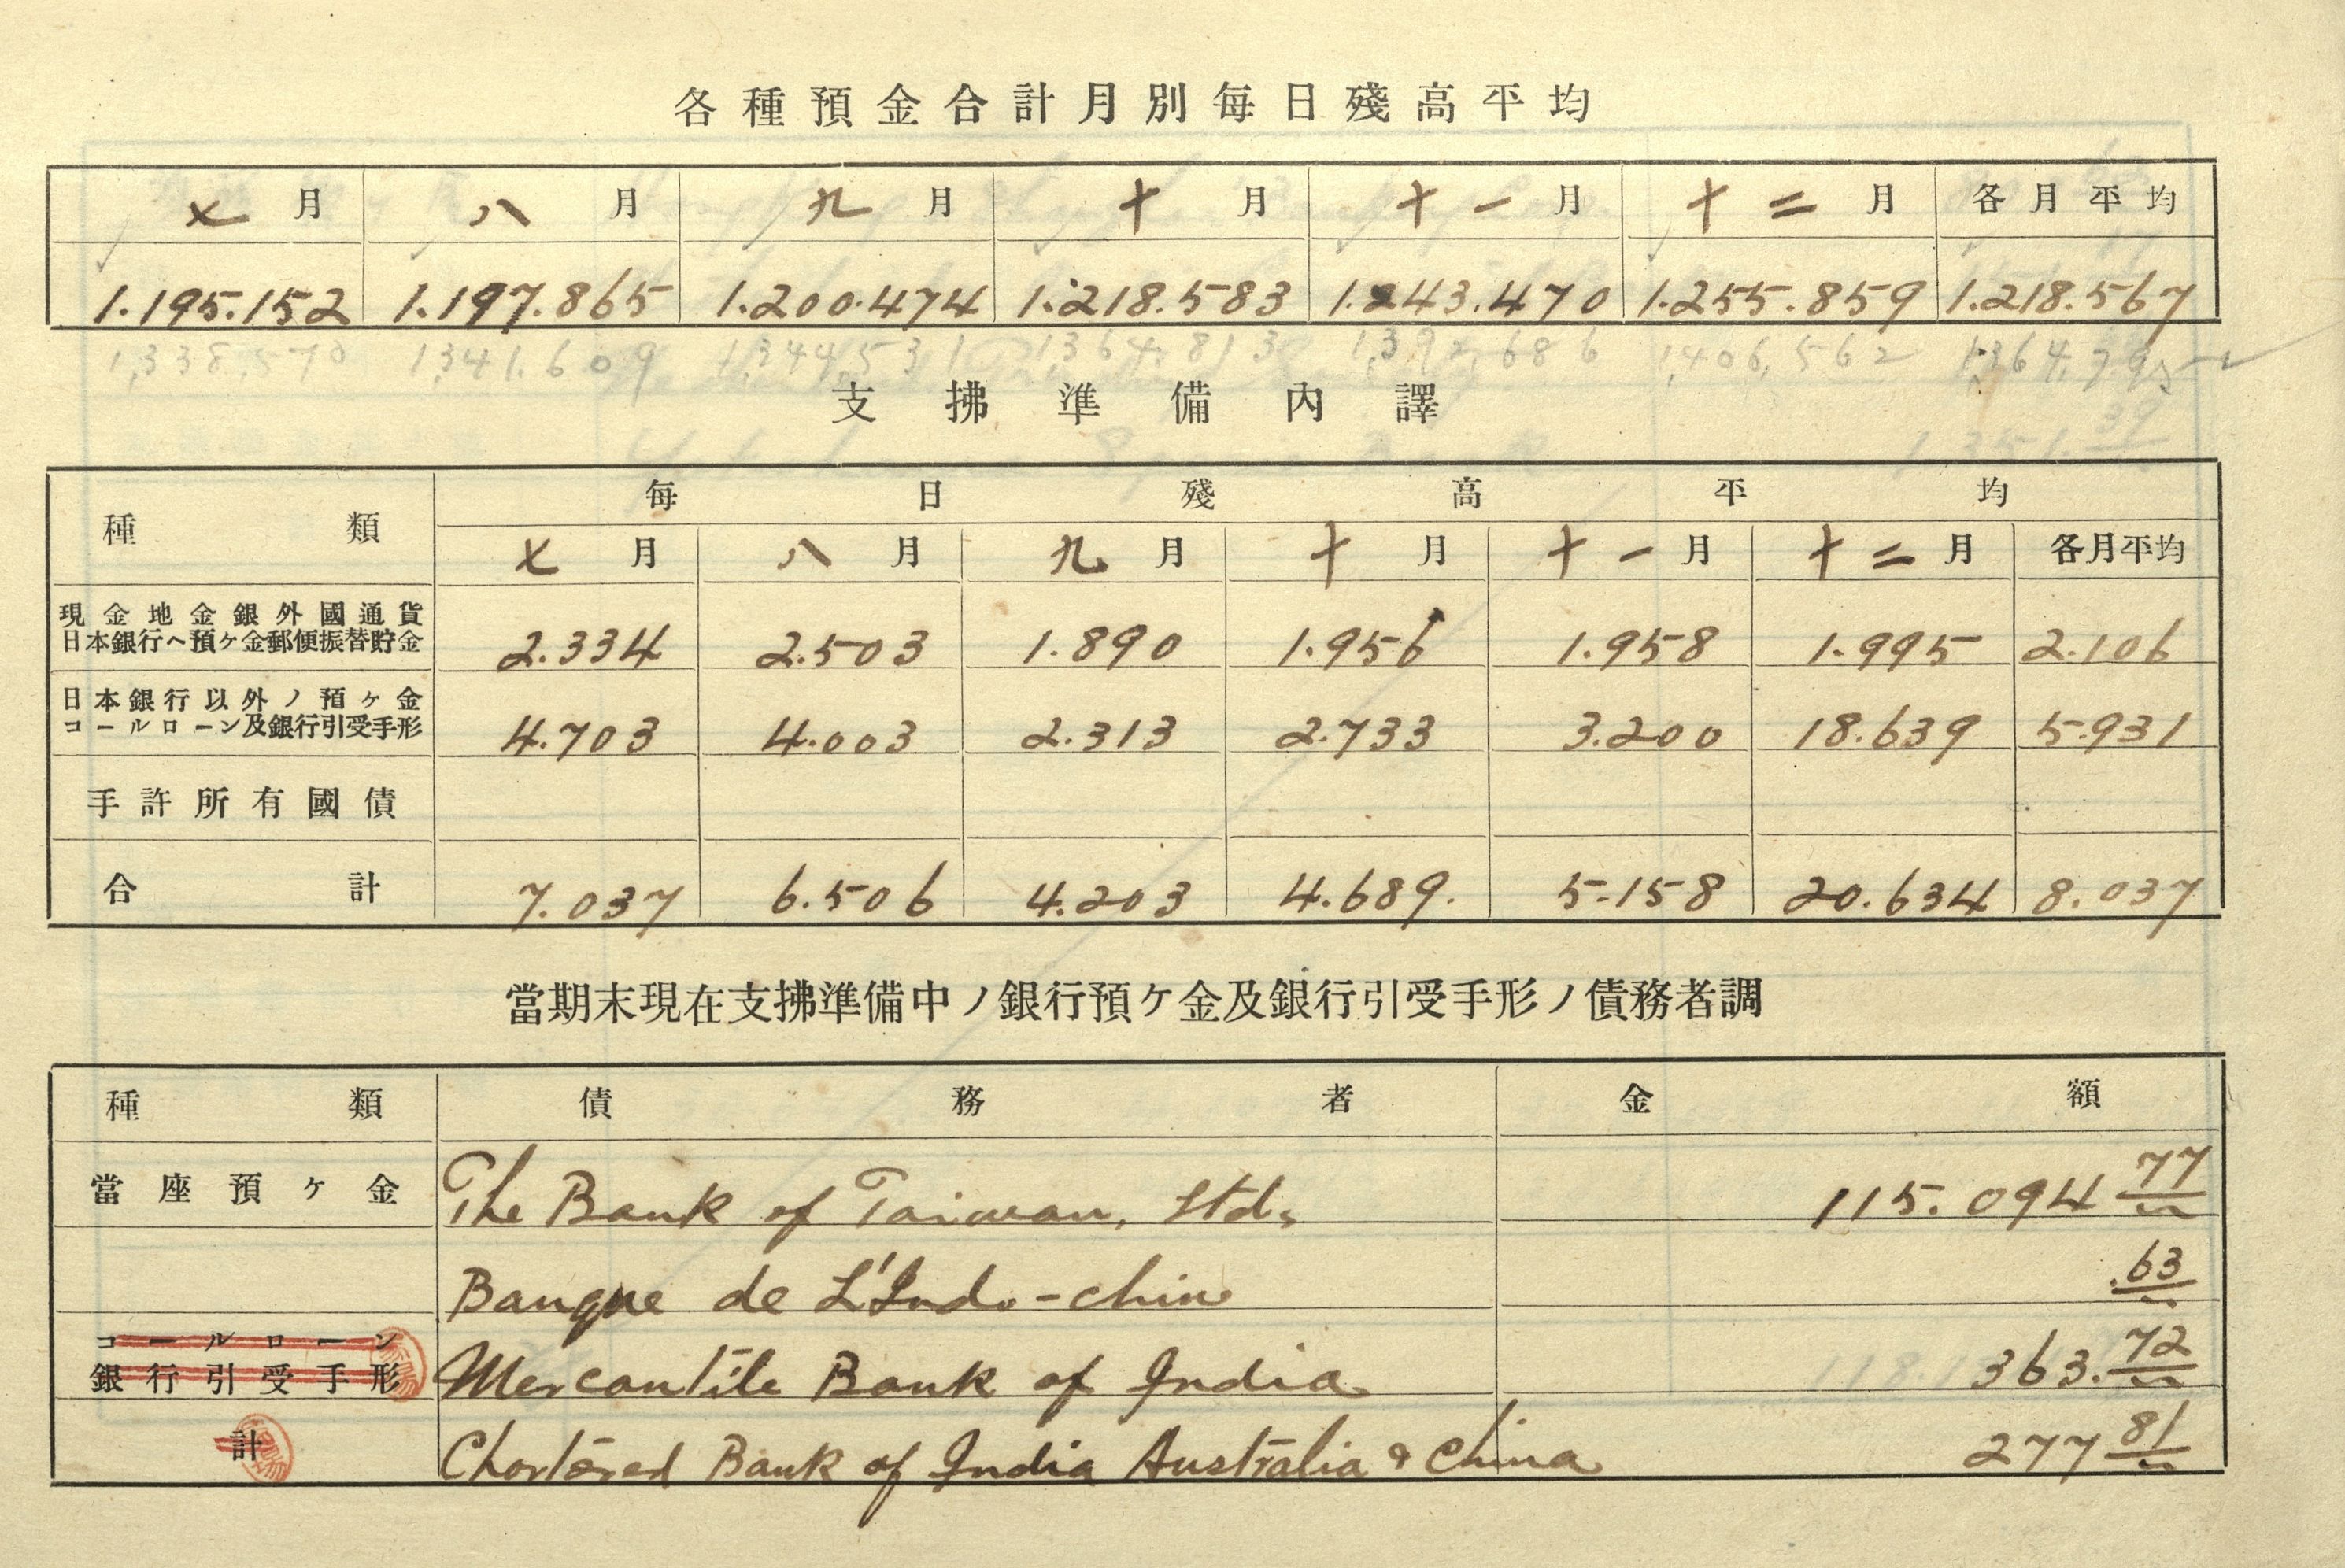 各種預金合計月別每日殘高平均
七月 八月 九月 十月 十一月 十二月 各月平均
1.195.152 1.197.865 1.200.474 1.218.583 1.243.470 1.255.859 1.218.567
1,338,570 1,341,609 1,344,531 1,364,813 1,392,686 1,406,562 1,364,795
支拂準備內譯
種類 每日殘高平均
七月 八月 九月 十月 十一月 十二月 各月平均
現金地金銀外國通貨
日本銀行へ預ヶ金郵便振替貯金 2.334 2.503 1.890 1.956 1.958 1.995 2.106
日本銀行以外ノ預ヶ金
コールローン及銀行引受手形 4.703 4.003 2.313 2.733 3.200 18.639 5.931
手許所有國債
合計 7.037 6.506 4.203 4.689. 5.158 20.634 8.037
當期末現在支拂準備中ノ銀行預ケ金及銀行引受手形ノ債務者調
種類 債務者 金額
當座預ヶ金 The Bank of Taiwan, Ltd, 115.094 77
Banque de L'Indo-chine .63
コールローン
銀行引受手形 Mercantile Bank of India 363.72
計 Chartered Bank of India Australia & China 277 81